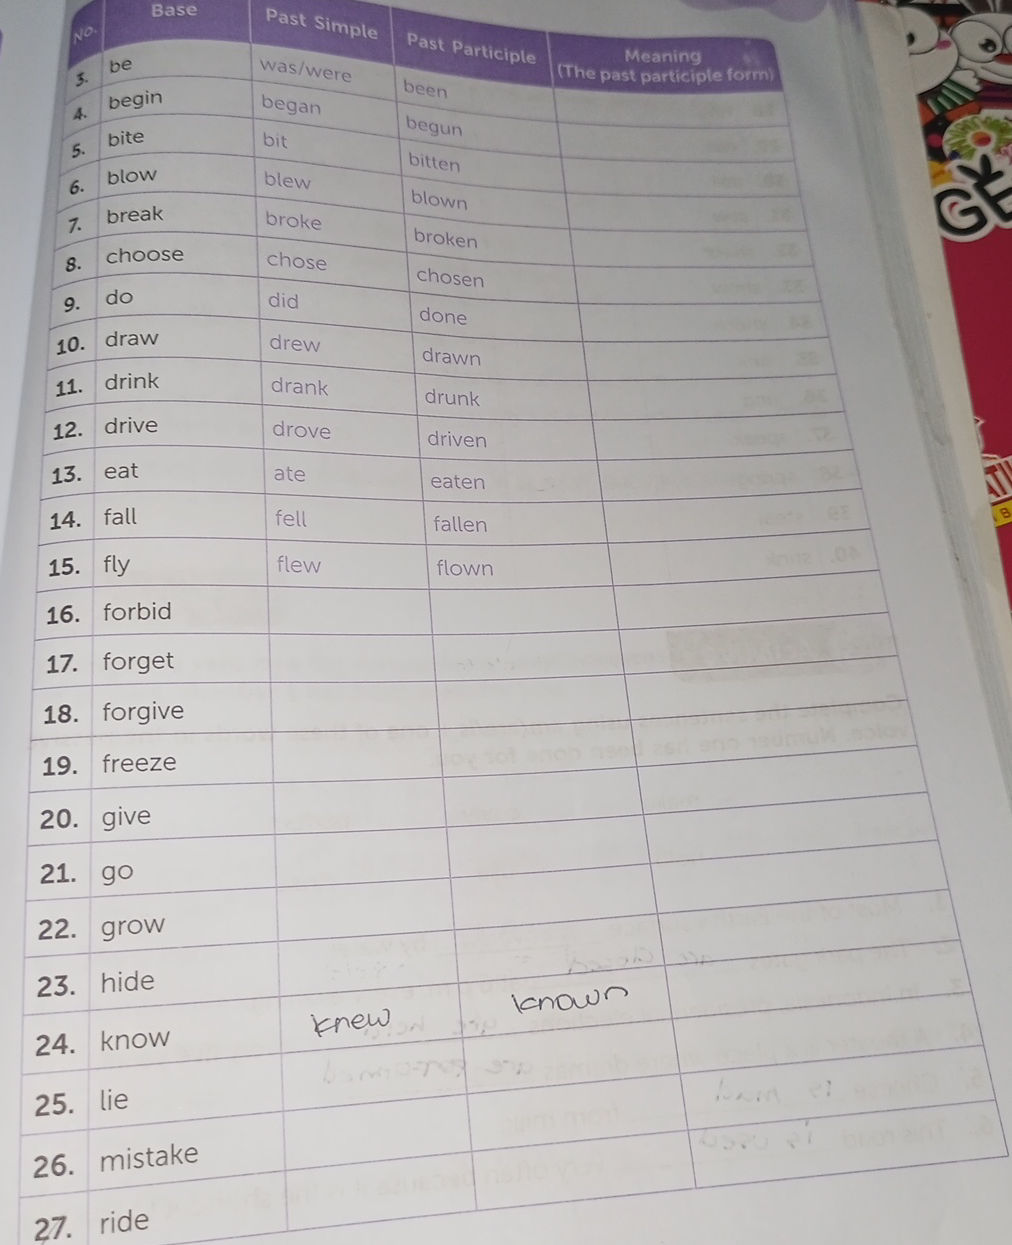 No. Base Past Simple Past Participle Meaning
(The past participle form)
3. be was/were been
4. begin began begun
5. bite bit bitten
6. blow blew blown
7. break broke broken
8. choose chose chosen
9. do did done
10. draw drew drawn
11. drink drank drunk
12. drive drove driven
13. eat ate eaten
14. fall fell fallen
15. fly flew flown
16. forbid
17. forget
18. forgive
19. freeze
20. give
21. go
22. grow
23. hide
24. know knew known
25. lie
26. mistake
27. ride